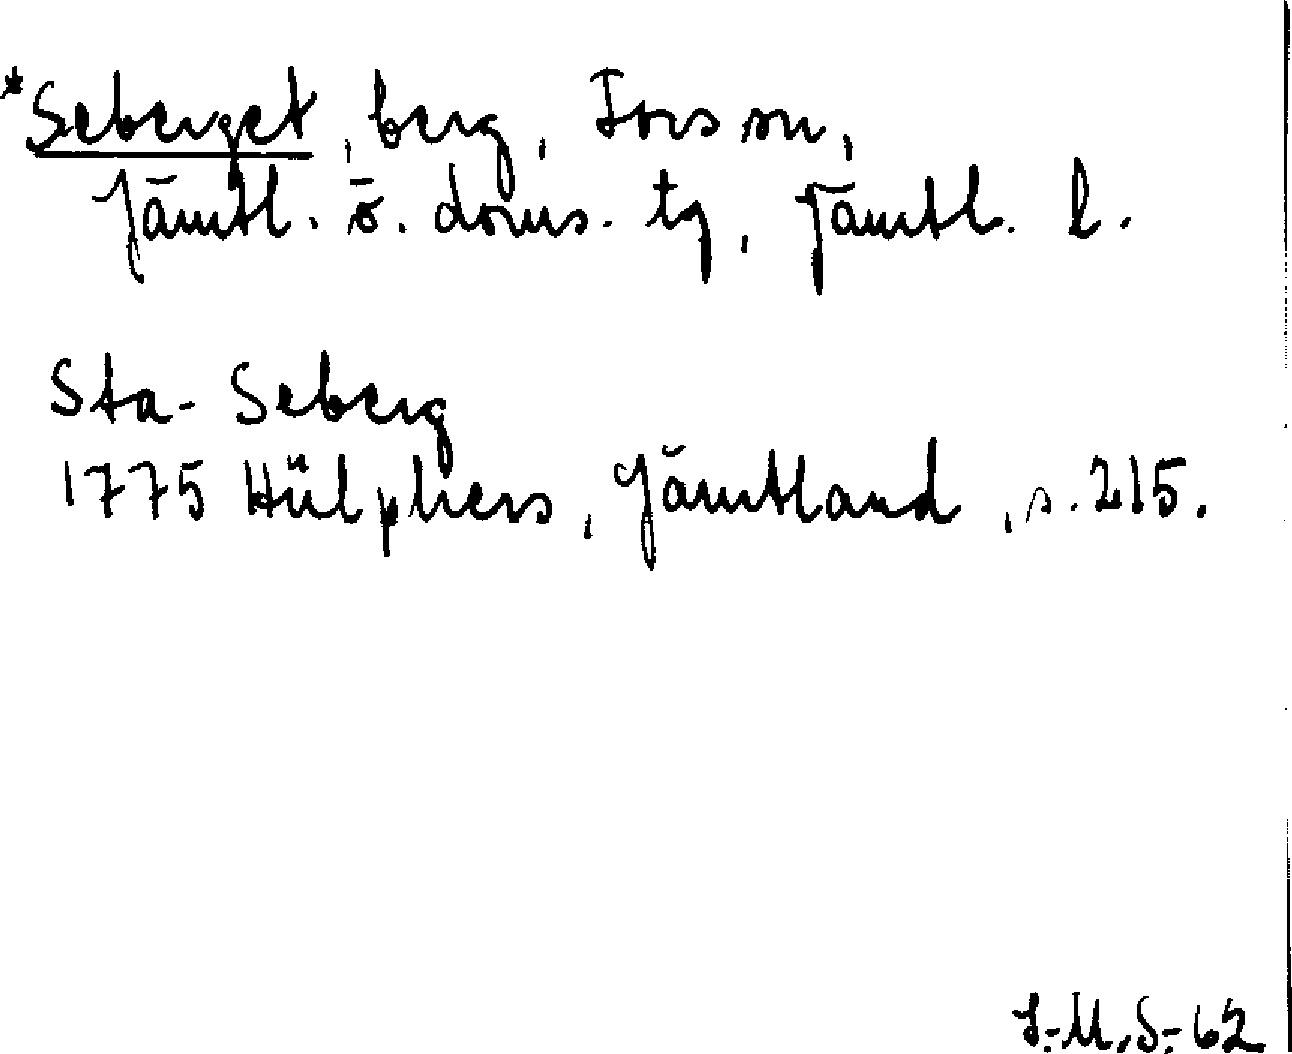 *Seberget, berg, Fors sn,
Jämtl. ö. doms. tg, Jämtl. l.
Sta- Seberg
1775 Hülphers, Jämtland, s. 215.
I.-M.S.-62